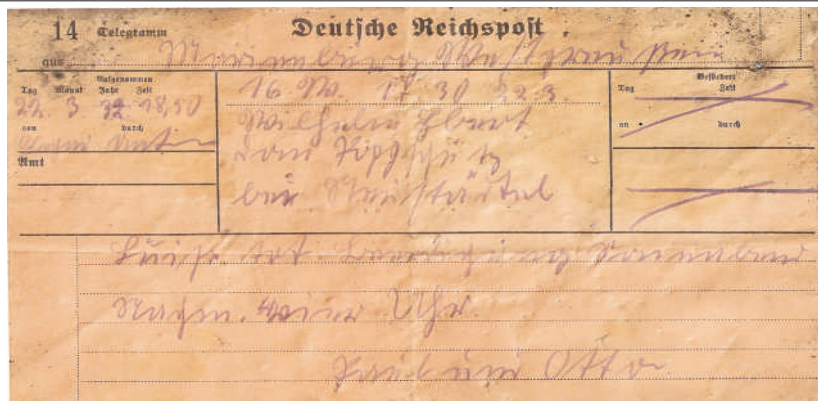 14 Telegramm Deutsche Reichspost
aus Marienburg Westpreußen
Aufgenommen
Tag Monat Jahr Zeit
22. 3. 32 18,50
von durch
Amt
16. W. 17 30 22.3.
Wilhelm Ebert
Dom
bei Neustädtel
Befördert
Tag Zeit
an durch
Luise tot Beerdigung Sonnabend
Nachm. vier Uhr.
Paul und Otto